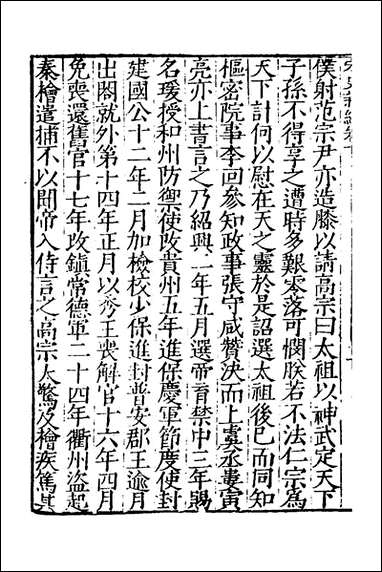 僕射范宗尹亦造膝以請高宗曰太祖以神武定天下
子孫不得享之遭時多艱零落可憫朕若不法仁宗爲
天下計何以慰在天之靈於是詔選太祖後已而同知
樞密院事李回參知政事張守咸贊决而上虞丞婁寅
亮亦上書言之乃紹興二年五月選帝育禁中三年賜
名瑗授和州防禦使改貴州五年進保慶軍節度使封
建國公十二年二月加檢校少保進封普安郡王逾月
出閤就外第十四年正月以秀王喪解官十六年四月
免喪還舊官十七年改鎮常德軍二十四年衢州盗起
秦檜遣捕不以聞帝入侍言之高宗大驚及檜疾篤其